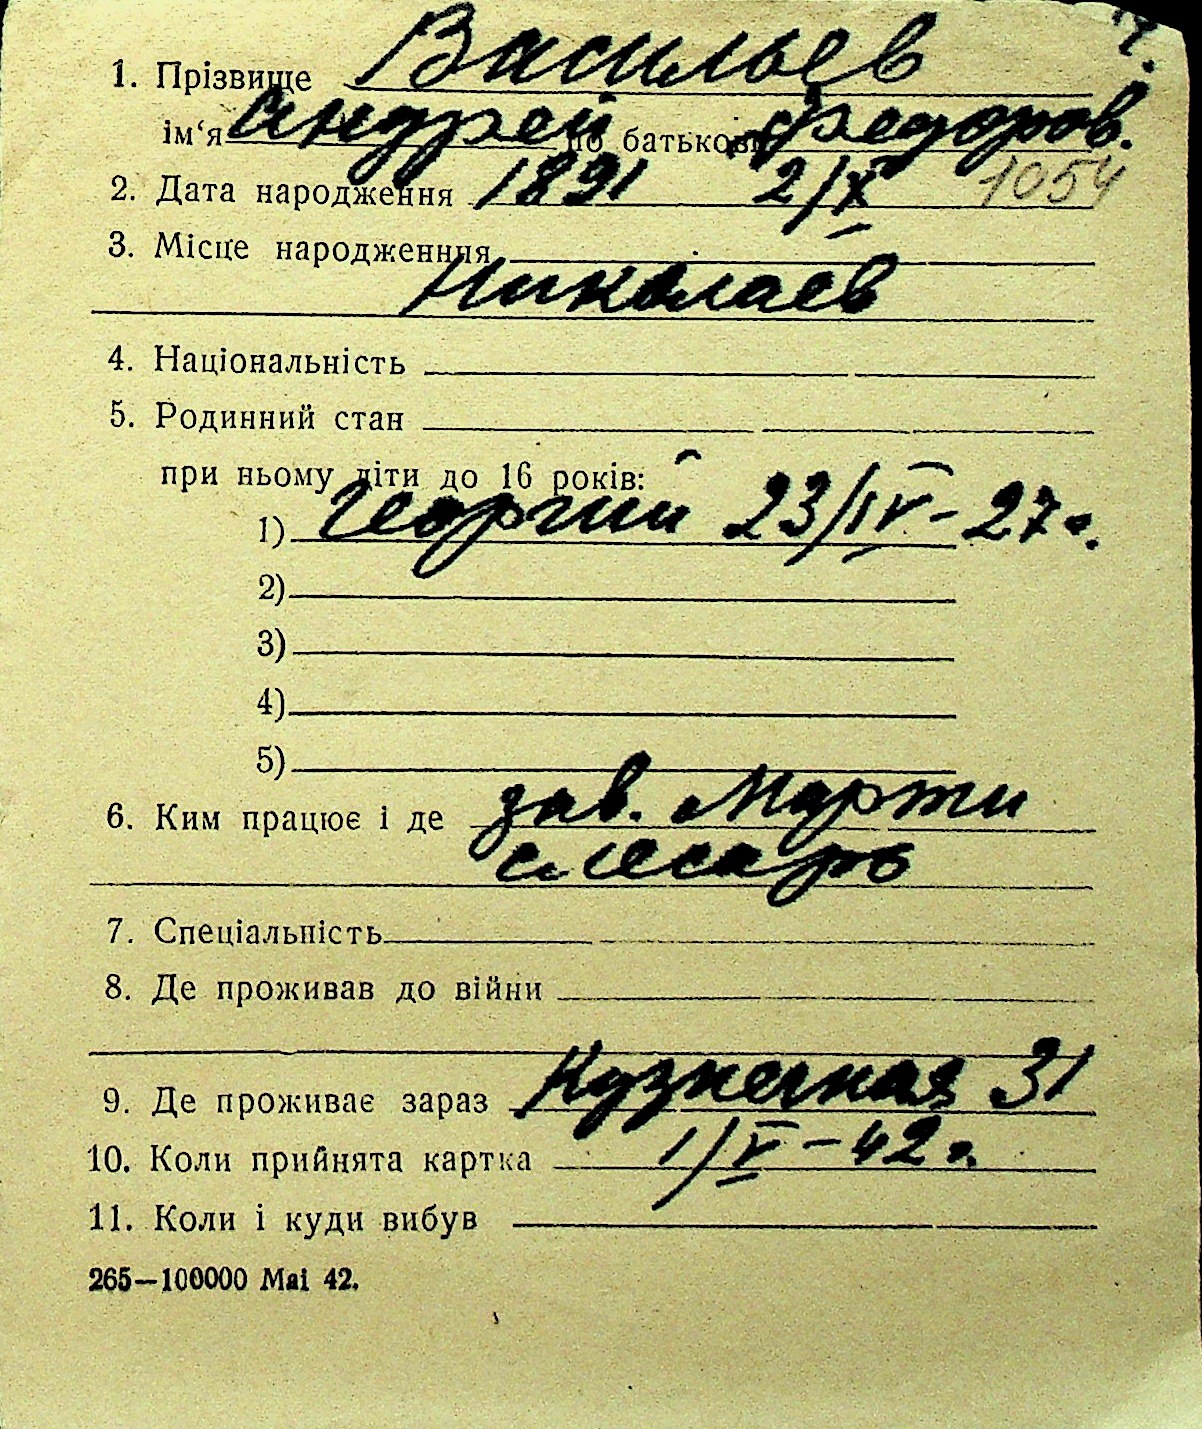 1. Прізвище Васильев
ім‘я Андрей по батькові Федоров.
2. Дата народження 1891 2/X 1054
3. Місце народженння
Николаев
4. Національність
5. Родинний стан
при ньому діти до 16 років:
1) Георгий 23/IV-27г.
2)
3)
4)
5)
6. Ким працює і де зав. Марти
слесарь
7. Спеціальність
8. Де проживав до війни
9. Де проживає зараз Кузнечная 31
10. Коли прийнята картка 1/V-42г.
11. Коли і куди вибув
265—100000 Mai 42.